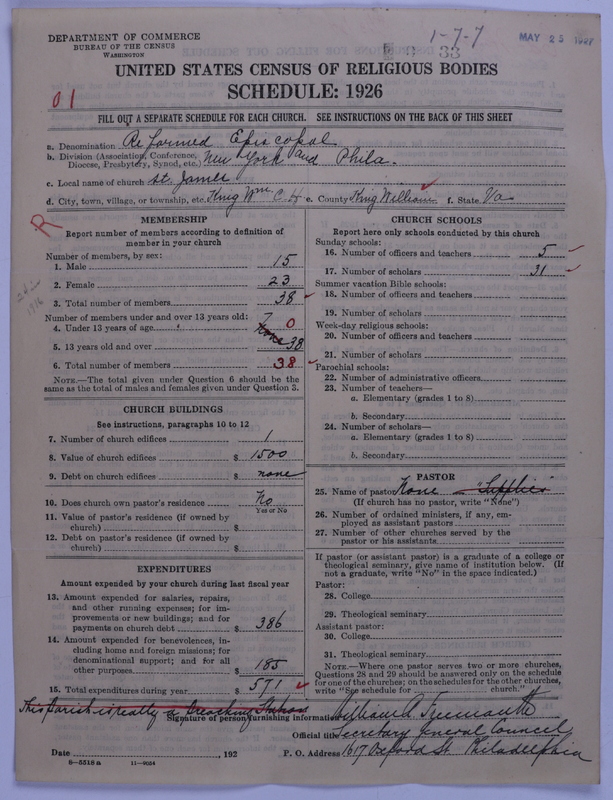 DEPARTMENT OF COMMERCE
BUREAU OF THE CENSUS
WASHINGTON
1-7-7
33
MAY 25 1927
UNITED STATES CENSUS OF RELIGIOUS BODIES
SCHEDULE: 1926
01
FILL OUT A SEPARATE SCHEDULE FOR EACH CHURCH. SEE INSTRUCTIONS ON THE BACK OF THIS SHEET
a. Denomination Reformed Episcopal
b. Division (Association, Conference, Diocese, Presbytery, Synod, etc.) New York and Phila.
c. Local name of church St. James
d. City, town, village, or township, etc. King Wm. C H e. County King William f. State Va
R
MEMBERSHIP
Report number of members according to definition of
member in your church
Number of members, by sex:
1. Male 15
2. Female 23
3. Total number of members 38
Number of members under and over 13 years old:
4. Under 13 years of age 0
5. 13 years old and over None 38
6. Total number of members 38
NOTE.—The total given under Question 6 should be the
same as the total of males and females given under Question 3.
CHURCH BUILDINGS
See instructions, paragraphs 10 to 12
7. Number of church edifices 1
8. Value of church edifices $ 1500
9. Debt on church edifices $ none
10. Does church own pastor's residence No
Yes or No
11. Value of pastor's residence (if owned by
church) $
12. Debt on pastor's residence (if owned by
church) $
EXPENDITURES
Amount expended by your church during last fiscal year
13. Amount expended for salaries, repairs,
and other running expenses; for im-
provements or new buildings; and for
payments on church debt $ 386
14. Amount expended for benevolences, in-
cluding home and foreign missions; for
denominational support; and for all
other purposes $ 185
15. Total expenditures during year $ 571
CHURCH SCHOOLS
Report here only schools conducted by this church
Sunday schools:
16. Number of officers and teachers 5
17. Number of scholars 31
Summer vacation Bible schools:
18. Number of officers and teachers
19. Number of scholars
Week-day religious schools:
20. Number of officers and teachers
21. Number of scholars
Parochial schools:
22. Number of administrative officers
23. Number of teachers—
a. Elementary (grades 1 to 8)
b. Secondary
24. Number of scholars—
a. Elementary (grades 1 to 8)
b. Secondary
PASTOR
25. Name of pastor None — "Supplied"
(If church has no pastor, write "None")
26. Number of ordained ministers, if any, em-
ployed as assistant pastors
27. Number of other churches served by the
pastor or his assistants
If pastor (or assistant pastor) is a graduate of a college or
theological seminary, give name of institution below. (If
not a graduate, write "No" in the space indicated.)
Pastor:
28. College
29. Theological seminary
Assistant pastor:
30. College
31. Theological seminary
NOTE.—Where one pastor serves two or more churches,
Questions 28 and 29 should be answered only on the schedule
for one of the churches; on the schedules for the other churches,
write "See schedule for church."
This Parish is really a Preaching Station
Signature of person furnishing information William A. Freemantle
Official title Secretary General Council
Date , 192
P. O. Address 1617 Oxford St. Philadelphia
8—5518 a 11—9054